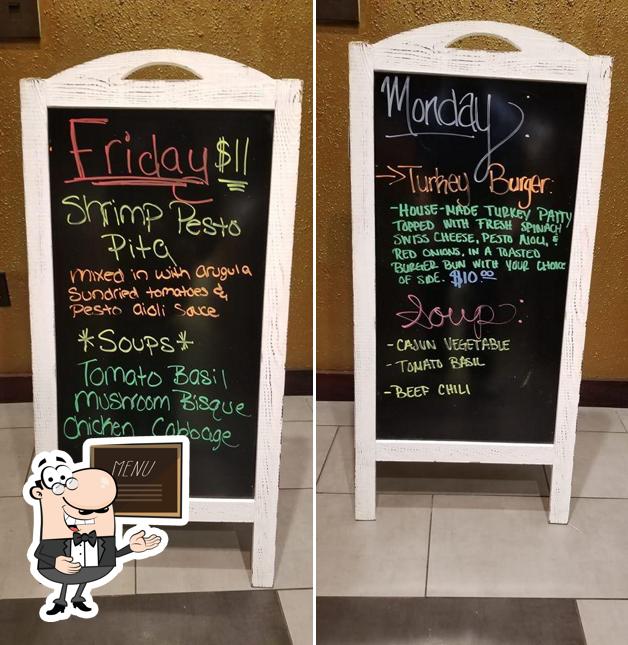 Friday $11
Shrimp Pesto
Pita
mixed in with arugula
Sundried tomatoes &
Pesto aioli Sauce
*Soups*
Tomato Basil
Mushroom Bisque
Chicken Cabbage
MENU
Monday
→Turkey Burger:
-HOUSE-MADE TURKEY PATTY
TOPPED WITH FRESH SPINACH
SWISS CHEESE, PESTO AIOLI, &
RED ONIONS, IN A TOASTED
BURGER BUN WITH YOUR CHOICE
OF SIDE. $10.00
Soup:
-CAJUN VEGETABLE
-TOMATO BASIL
-BEEF CHILI